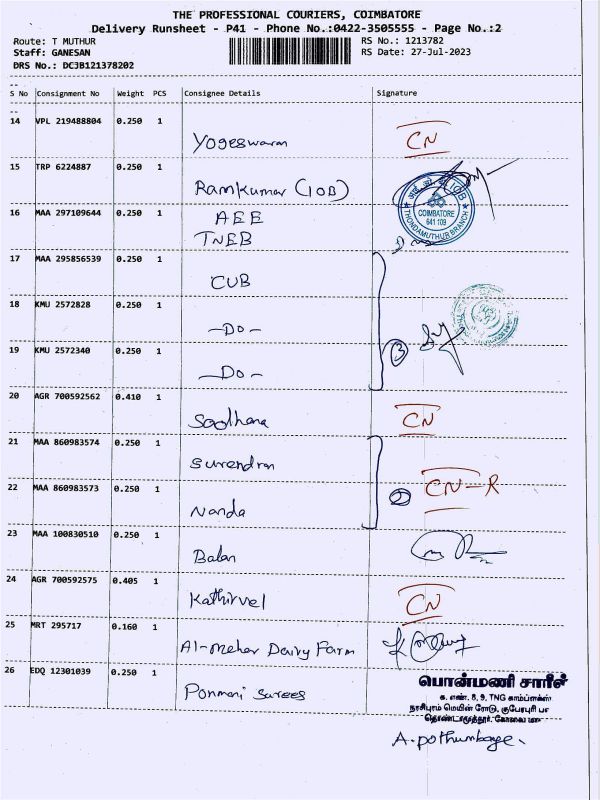 THE PROFESSIONAL COURIERS, COIMBATORE
Delivery Runsheet - P41 - Phone No.:0422-3505555 - Page No.:2
Route: T MUTHUR
RS No.: 1213782
Staff: GANESAN
RS Date: 27-Jul-2023
DRS No.: DC3B121378202
S No Consignment No Weight PCS Consignee Details Signature
14 VPL 219488804 0.250 1 Yogeswaran CN
15 TRP 6224887 0.250 1 Ramkumar (IOB)
IOB
COIMBATORE
641 109
THONDAMUTHUR BRANCH
16 MAA 297109644 0.250 1 AEE
TNEB
17 MAA 295856539 0.250 1 CUB
18 KMU 2572828 0.250 1 -Do-
3
19 KMU 2572340 0.250 1 -Do-
20 AGR 700592562 0.410 1 Sadhana CN
21 MAA 860983574 0.250 1 Surendran
2 CN-R
22 MAA 860983573 0.250 1 Nanda
23 MAA 100830510 0.250 1 Balan
24 AGR 700592575 0.405 1 Kathirvel CN
25 MRT 295717 0.160 1 Al-meher Dairy Farm
26 EDQ 12301039 0.250 1 Ponmani Sarees
பொன்மணி சாரீஸ்
க. எண். 8, 9, TNG காம்ப்ளக்ஸ்
நரசிபுரம் மெயின் ரோடு, குபேரபுரி
தொண்டாமுத்தூர், கோவை
A. pothumbage.